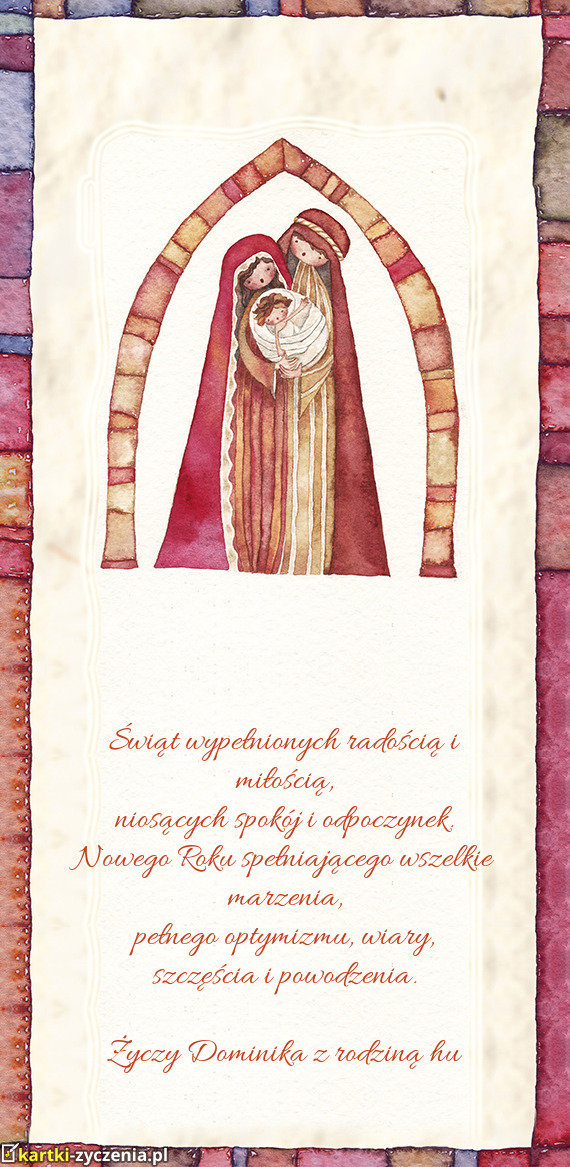 Świąt wypełnionych radością i
miłością,
niosących spokój i odpoczynek.
Nowego Roku spełniającego wszelkie
marzenia,
pełnego optymizmu, wiary,
szczęścia i powodzenia.
Życzy Dominika z rodziną hu
kartki-zyczenia.pl